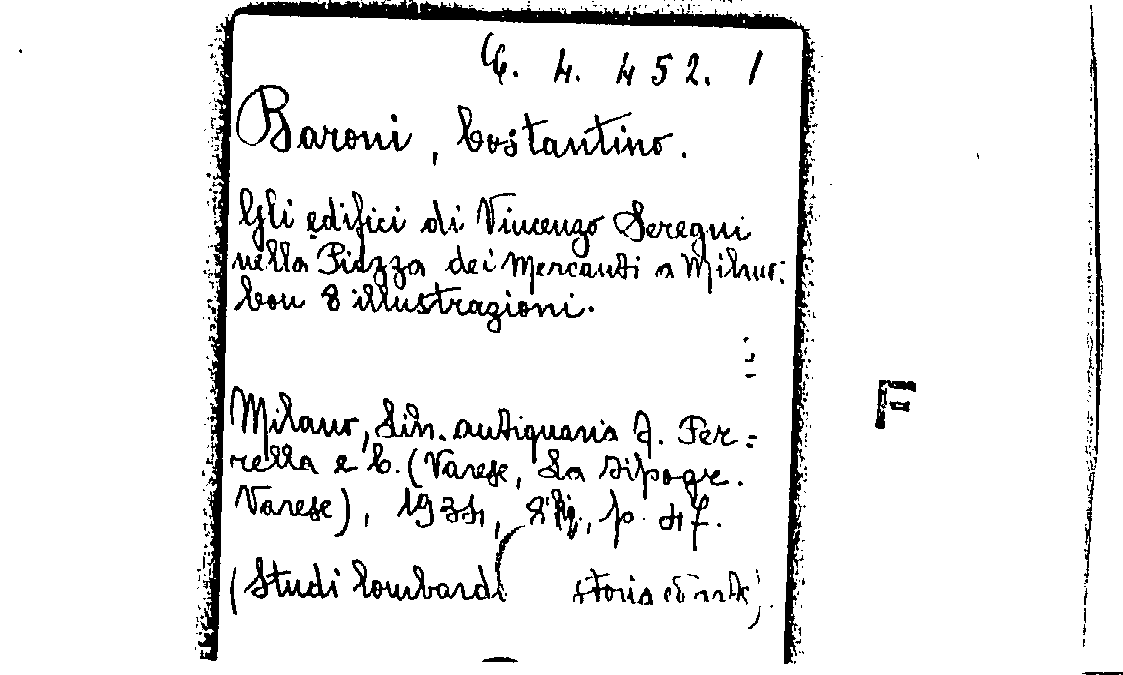 C. 4. 452. 1
Baroni, Costantino.
Gli edifici di Vincenzo Seregni
nella Piazza dei Mercanti a Milano:
Con 8 illustrazioni.
Milano, Lib. antiquaria J. Per=
rella e C. (Varese, La Tipogr.
Varese), 1934, 8° fig., p. 47.
(Studi lombardi storia ed arte).